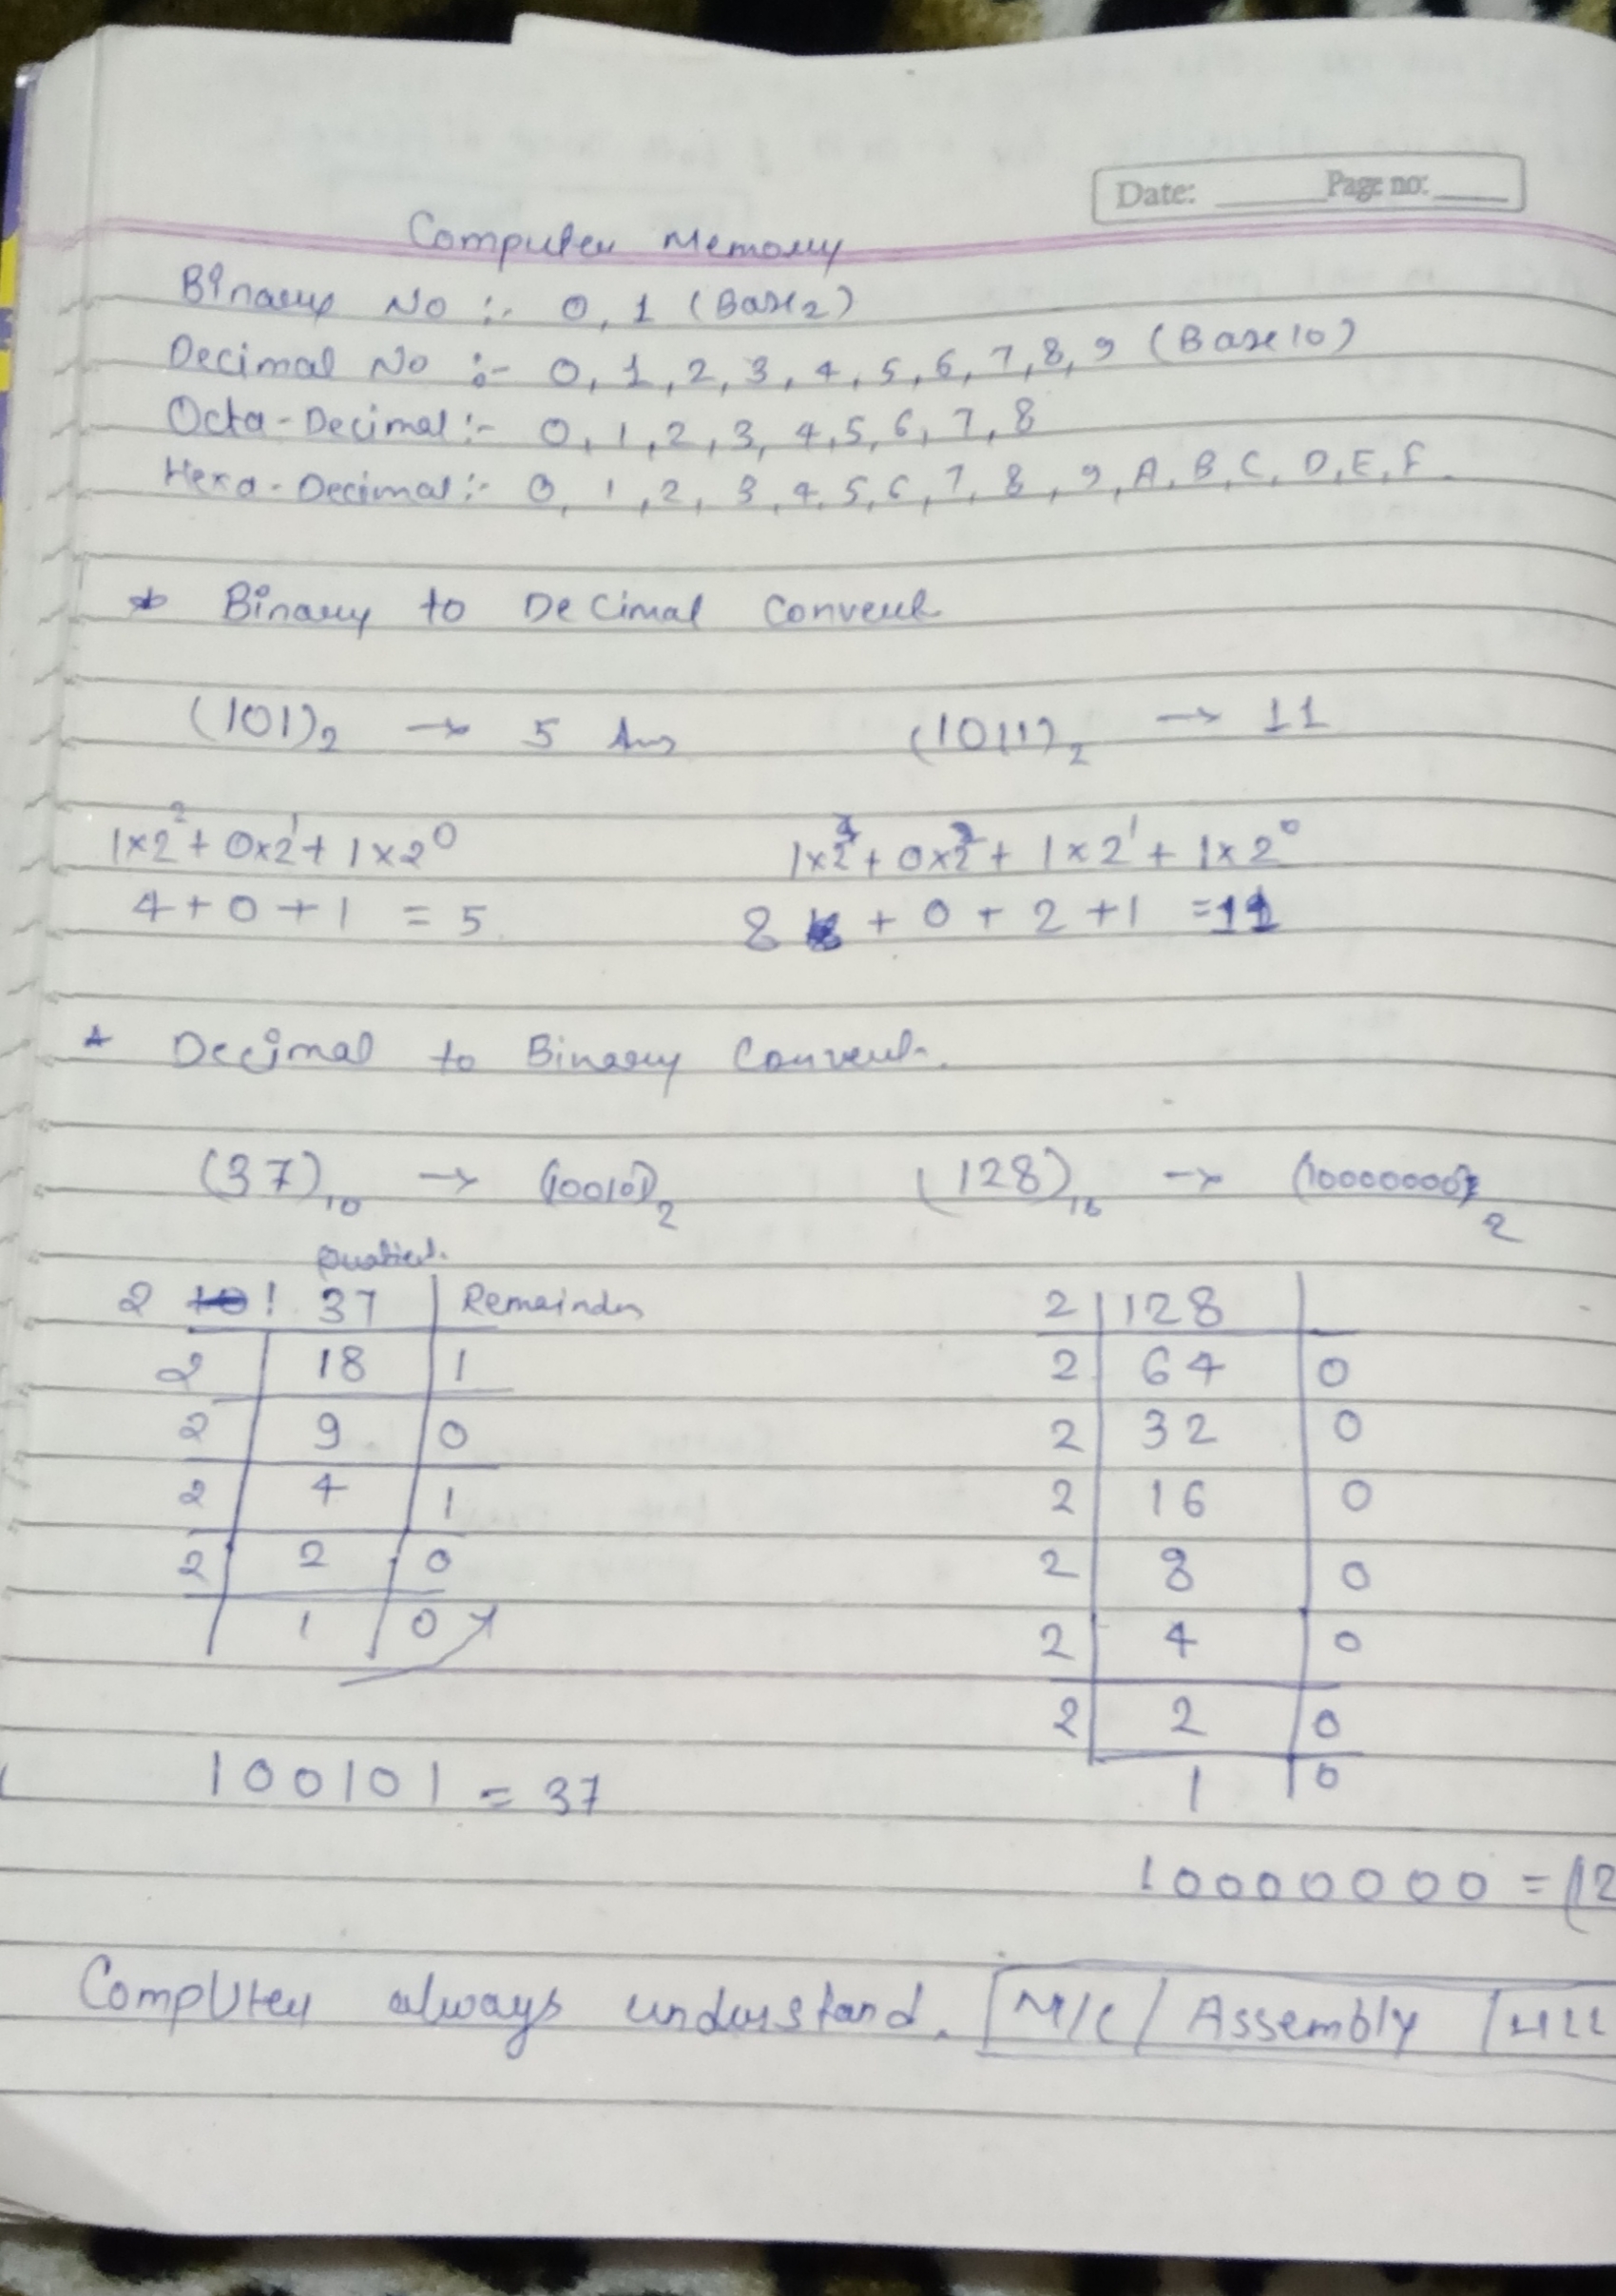 Date: ______ Page no: ____
Computer Memory
Binary No :- 0, 1 (Base 2)
Decimal No :- 0, 1, 2, 3, 4, 5, 6, 7, 8, 9 (Base 10)
Octa-Decimal :- 0, 1, 2, 3, 4, 5, 6, 7, 8
Hexa-Decimal :- 0, 1, 2, 3, 4, 5, 6, 7, 8, 9, A, B, C, D, E, F
* Binary to Decimal Convert
(101)₂ → 5 Ans (1011)₂ → 11
1×2²+0×2¹+1×2⁰ 1×2³+0×2²+1×2¹+1×2⁰
4+0+1 = 5 8 + 0 + 2 + 1 = 11
* Decimal to Binary Convert.
(37)₁₀ → (100101)₂ (128)₁₀ → (10000000)₂
2 37 Remainder 2 128
2 18 1 2 64 0
2 9 0 2 32 0
2 4 1 2 16 0
2 2 0 2 8 0
1 0 2 4 0
2 2 0
100101 = 37 1 0
10000000 = (12
Computer always understand. M/C / Assembly / HLL